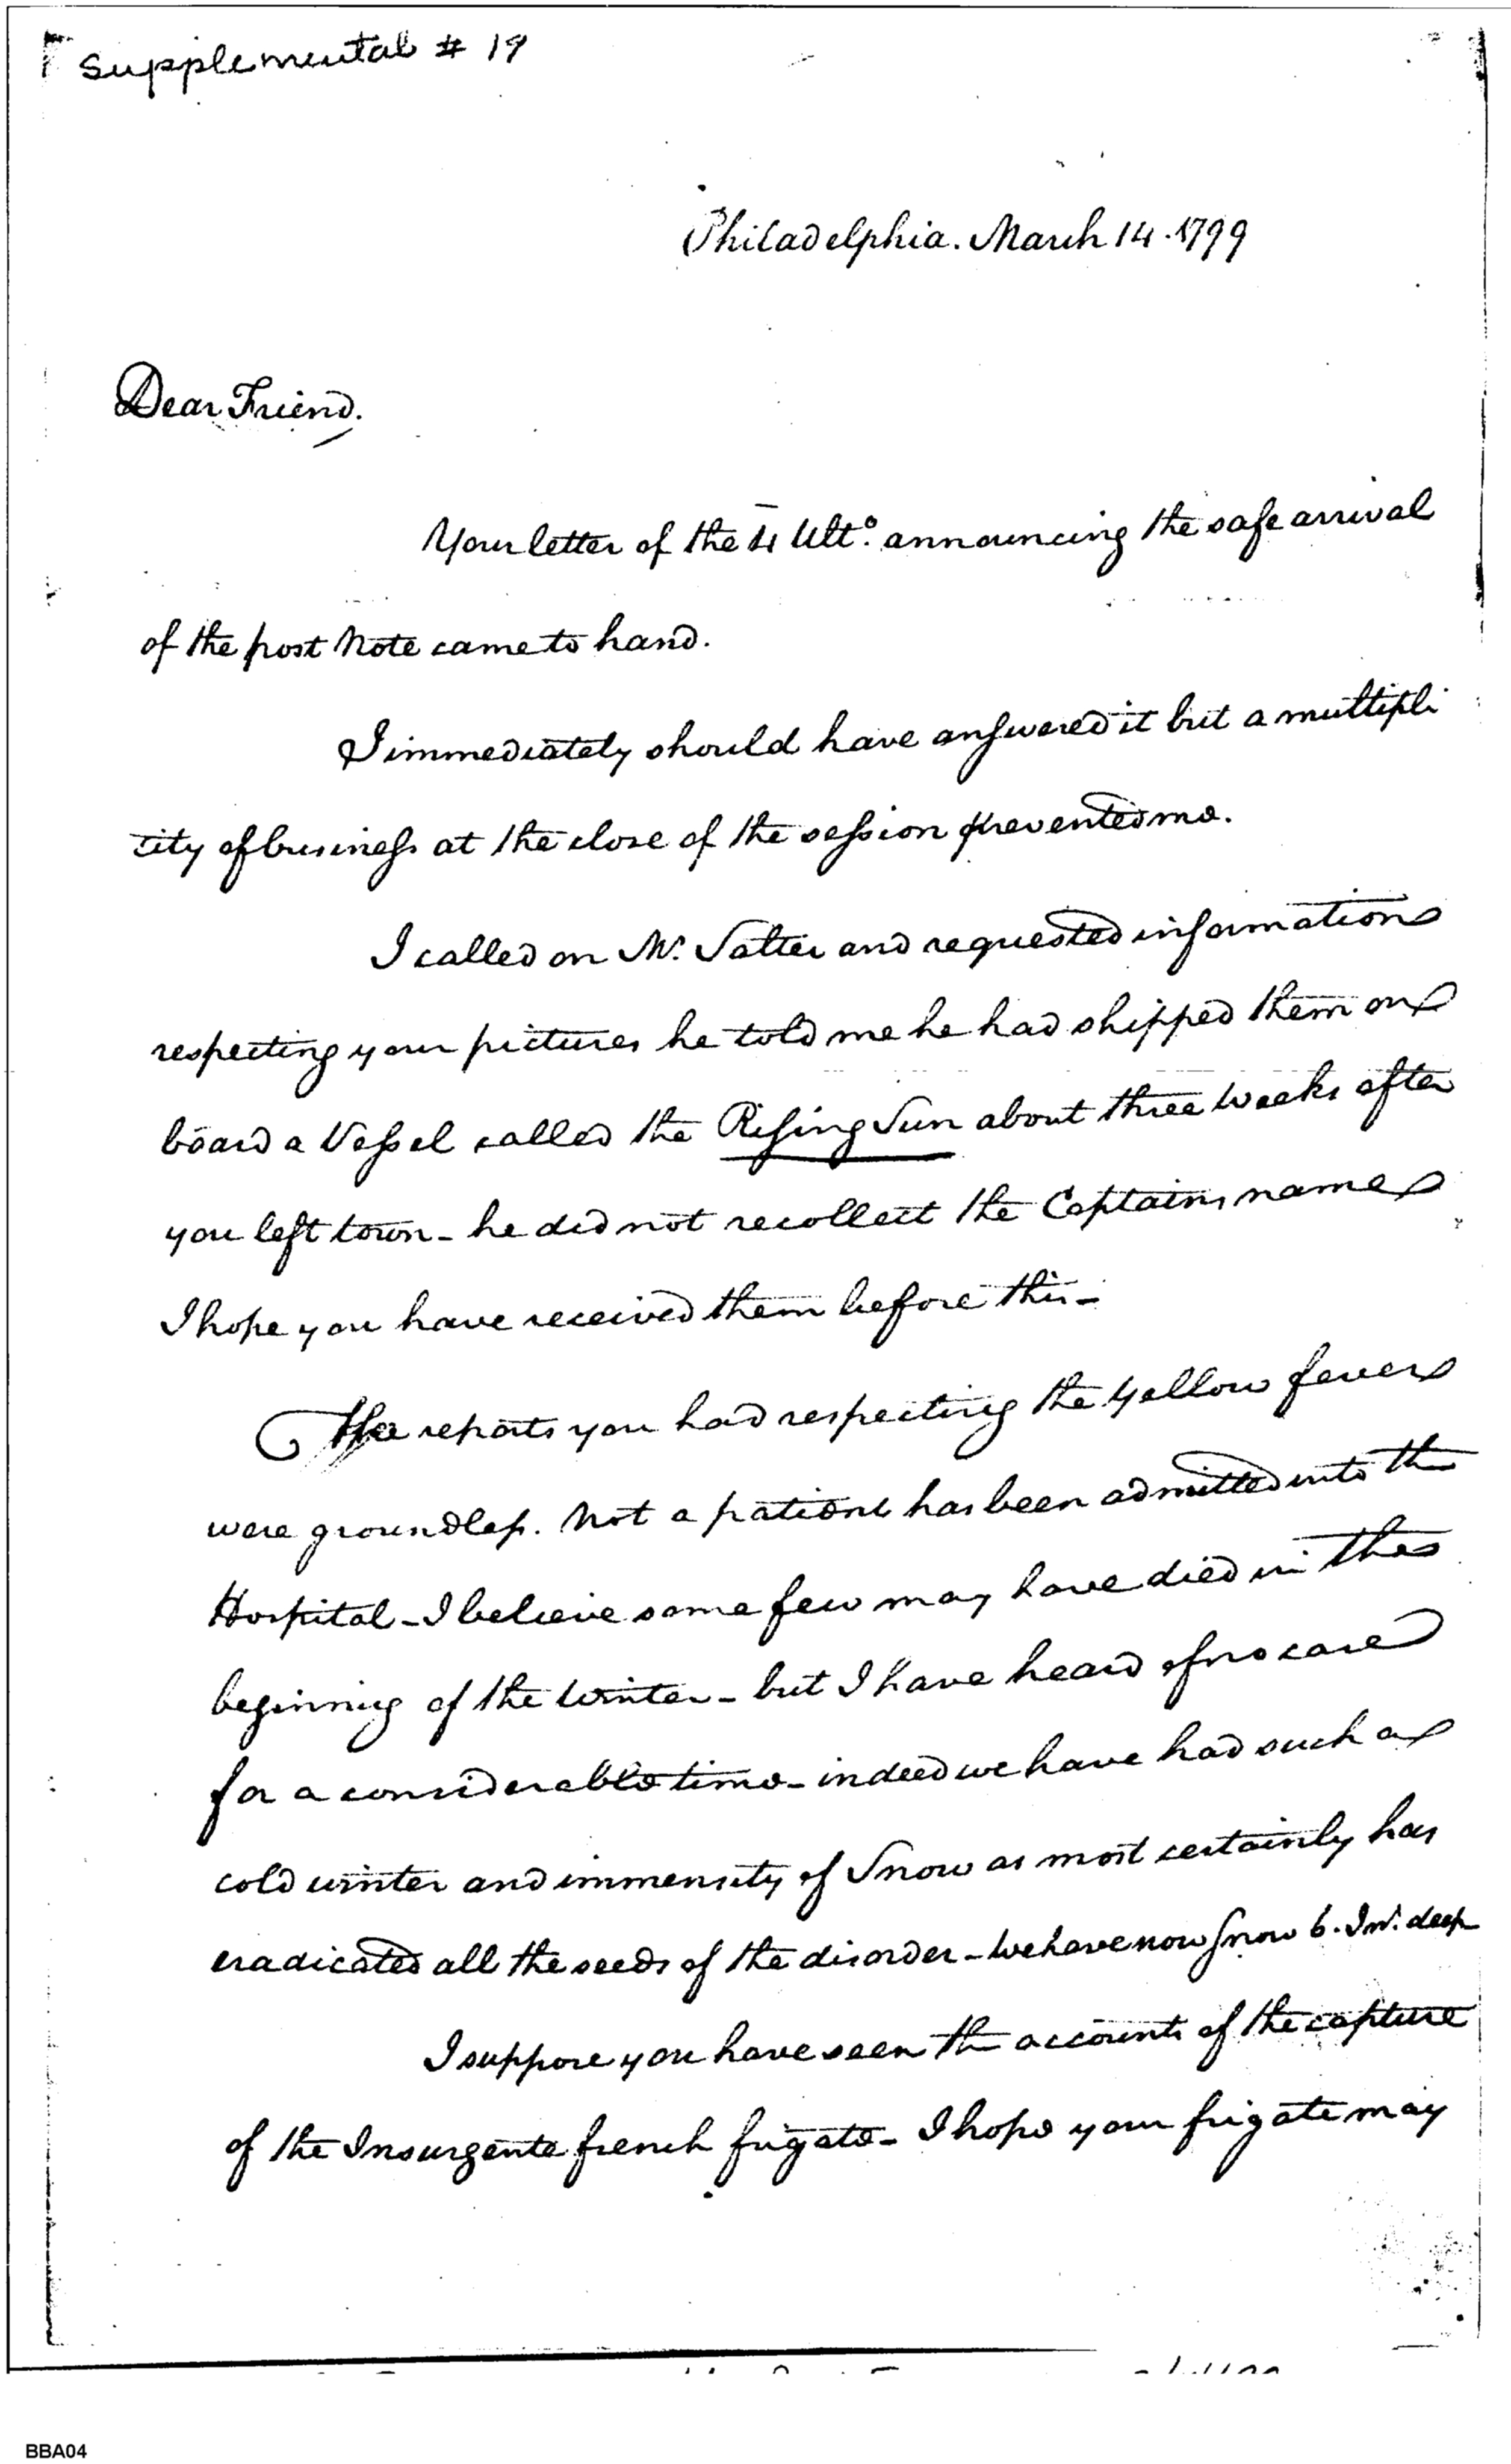 Supplemental # 19
Philadelphia. March 14. 1799
Dear Friend.
Your letter of the 4 Ulto. announcing the safe arrival
of the post Note came to hand.
I immediately should have answered it but a multipli
city of business at the close of the session prevented me.
I called on Mr. Salter and requested information
respecting your pictures he told me he had shipped them on
board a Vessel called the Rising Sun about three weeks after
you left town - he did not recollect the Captains name
I hope you have received them before this -
The reports you had respecting the yellow fever
were groundless. Not a patient has been admitted into the
Hospital - I believe some few may have died in the
beginning of the Winter - but I have heard of no case
for a considerable time - indeed we have had such a
cold winter and immensity of Snow as most certainly has
eradicated all the seeds of the disorder - We have now Snow 6. In. deep
I suppose you have seen the accounts of the capture
of the Insurgente french frigate - I hope your frigate may
BBA04